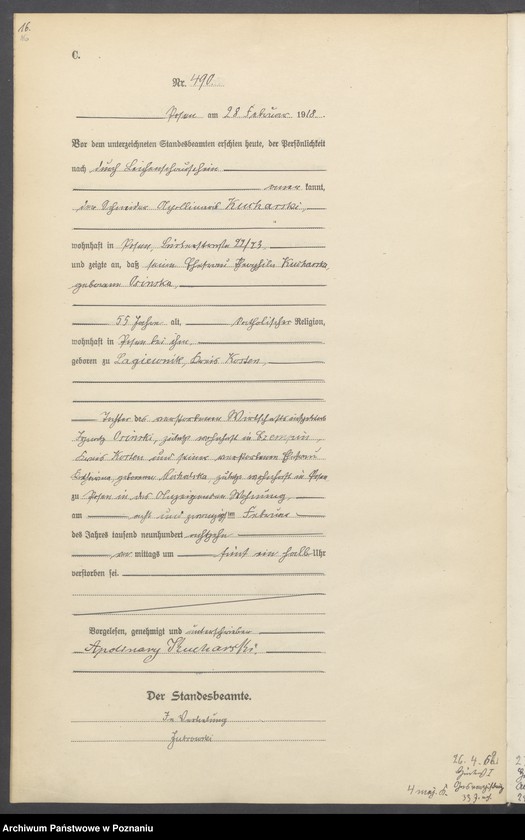 16.
C.
Nr. 490.
Posen am 28 Februar 1918.
Vor dem unterzeichneten Standesbeamten erschien heute, der Persönlichkeit
nach durch Leichenschauschein
kannt,
der Schneider Apollinaris Kucharski,
wohnhaft in Posen, 22/23
und zeigte an, daß seine Ehefrau Kucharska
geborene Osinska,
55 Jahre alt, katholischer Religion,
wohnhaft in Posen bei ihm,
geboren zu Lagiewnik, Kreis Kosten,
Tochter des verstorbenen Wirtschaftsinspektors
Ignatz Osinski, zuletzt wohnhaft in Czempin,
Kreis Kosten und seiner verstorbenen Ehefrau
geborene zuletzt wohnhaft in Posen
zu Posen in des Anzeigenden Wohnung,
am acht und zwanzigsten Februar
des Jahres tausend neunhundert achtzehn
vor mittags um fünf ein halb Uhr
verstorben sei.
Vorgelesen, genehmigt und unterschrieben
Apolinary Kucharski.
Der Standesbeamte.
In Vertretung
26. 4. 62
Archiwum Państwowe w Poznaniu